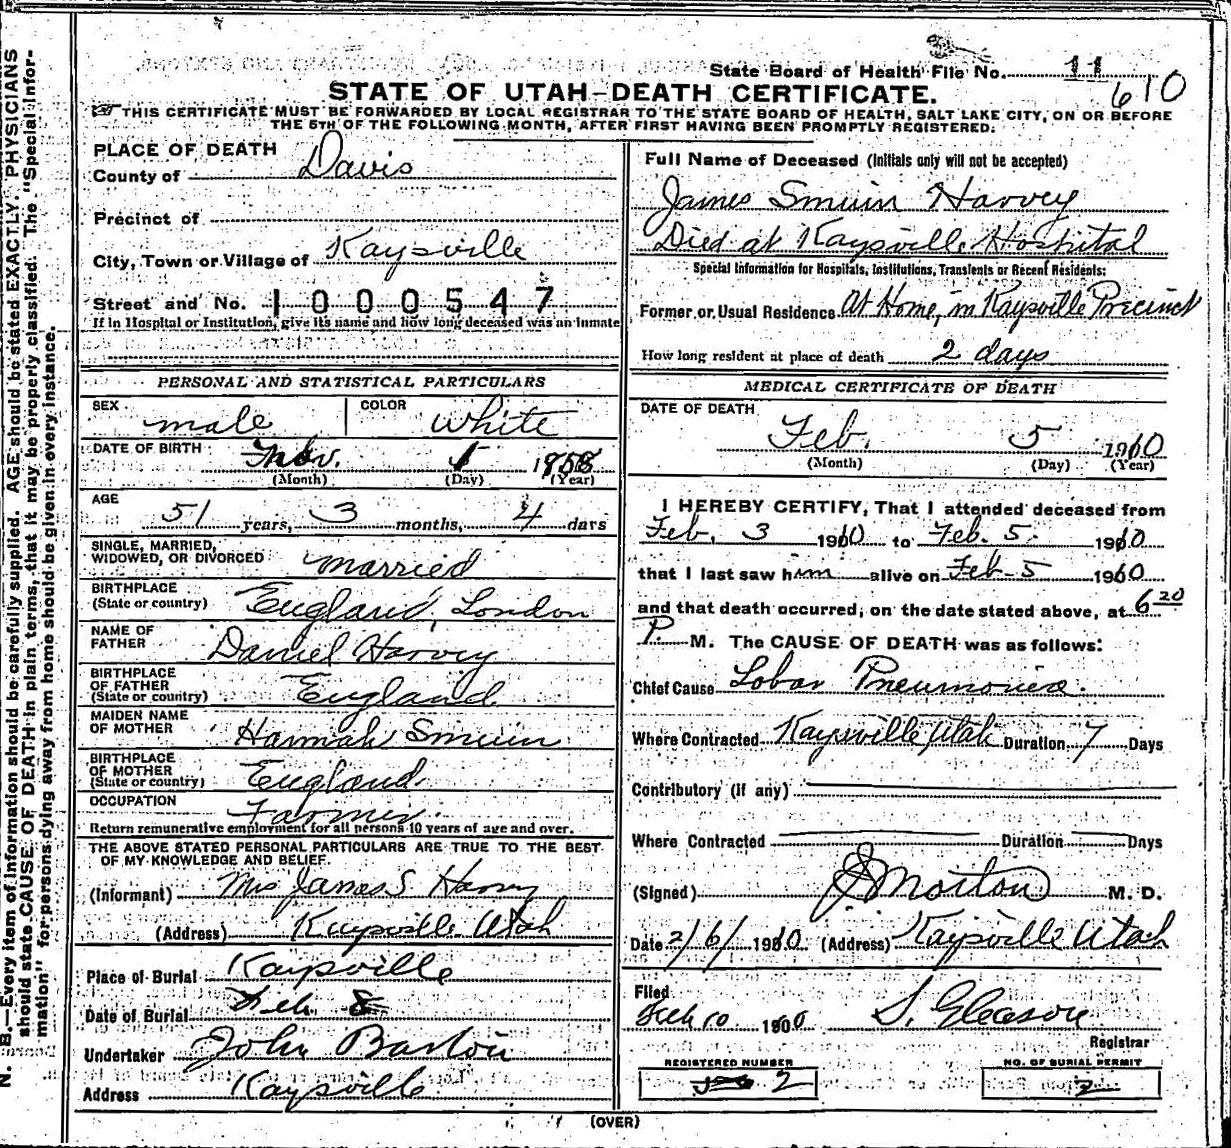 State Board of Health File No. 11
610
STATE OF UTAH-DEATH CERTIFICATE.
THIS CERTIFICATE MUST BE FORWARDED BY LOCAL REGISTRAR TO THE STATE BOARD OF HEALTH, SALT LAKE CITY, ON OR BEFORE
THE 5TH OF THE FOLLOWING MONTH, AFTER FIRST HAVING BEEN PROMPTLY REGISTERED.
PLACE OF DEATH
County of Davis
Precinct of
City, Town or Village of Kaysville
Street and No. 1000547
If in Hospital or Institution, give its name and how long deceased was an inmate
PERSONAL AND STATISTICAL PARTICULARS
SEX male COLOR white
DATE OF BIRTH Nov. 1 1858
(Month) (Day) (Year)
AGE 51 years, 3 months, 4 days
SINGLE, MARRIED,
WIDOWED, OR DIVORCED married
BIRTHPLACE
(State or country) England, London
NAME OF
FATHER Daniel Harvey
BIRTHPLACE
OF FATHER
(State or country) England
MAIDEN NAME
OF MOTHER Hannah Smuin
BIRTHPLACE
OF MOTHER
(State or country) England
OCCUPATION Farmer
Return remunerative employment for all persons 10 years of age and over.
THE ABOVE STATED PERSONAL PARTICULARS ARE TRUE TO THE BEST
OF MY KNOWLEDGE AND BELIEF.
(Informant) Mrs James S Harvey
(Address) Kaysville Utah
Place of Burial Kaysville
Date of Burial Feb. 8
Undertaker John Barton
Address Kaysville
Full Name of Deceased (Initials only will not be accepted)
James Smuin Harvey
Died at Kaysville Hospital
Special Information for Hospitals, Institutions, Transients or Recent Residents:
Former or Usual Residence At Home, in Kaysville Precinct
How long resident at place of death 2 days
MEDICAL CERTIFICATE OF DEATH
DATE OF DEATH
Feb. 5 1910
(Month) (Day) (Year)
I HEREBY CERTIFY, That I attended deceased from
Feb. 3 1910 to Feb. 5. 1910
that I last saw him alive on Feb-5 1910
and that death occurred, on the date stated above, at 6 20
P. M. The CAUSE OF DEATH was as follows:
Chief Cause Lobar Pneumonia.
Where Contracted Kaysville Utah Duration 7 Days
Contributory (if any)
Where Contracted Duration Days
(Signed) J Morton M. D.
Date 2/6/ 1910 (Address) Kaysville Utah
Filed
Feb 10 1910 S. Gleason
Registrar
REGISTERED NUMBER
2
NO. OF BURIAL PERMIT
2
(OVER)
N. B.—Every item of information should be carefully supplied. AGE should be stated EXACTLY. PHYSICIANS
should state CAUSE OF DEATH in plain terms, that it may be properly classified. The "Special Infor-
mation" for persons dying away from home should be given in every instance.